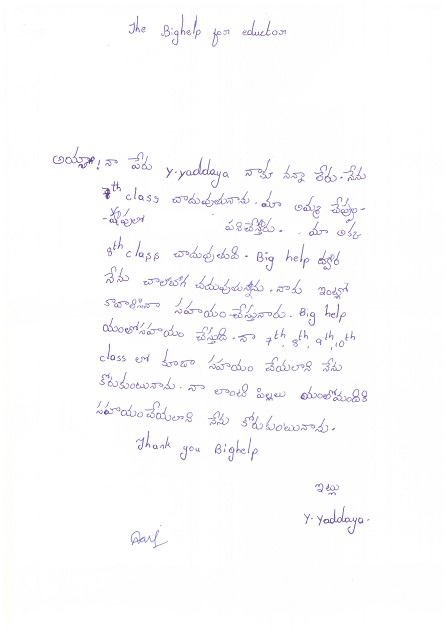 The Bighelp for eduction
అయ్యా! నా పేరు Y.yaddaya నాకు నన్నా లేరు. నేను
7th class చాదువుతునాను. మా అమ్మ చేప్పుల
-షాపులో పనిచేస్తారు. మా అక్క
8th class చాదువుతుంది. Big help ద్వార
నేను చాలాబాగ చదువుతున్నాను. నాకు ఇంట్లో
కావాలిసినా సహాయం చేస్తునారు. Big help
యంతోసహాయం చేస్తుంది. నా 7th, 8th, 9th, 10th
class లో కూడా సహాయం చేయలాని నేను
కోరుకుంటునాను. నా లాంటి పిల్లలు యంతోమందికి
సహాయంచేయలాని నేను కోరుకుంటునాను.
Thank you Bighelp
ఇట్లు
Y. Yaddaya.